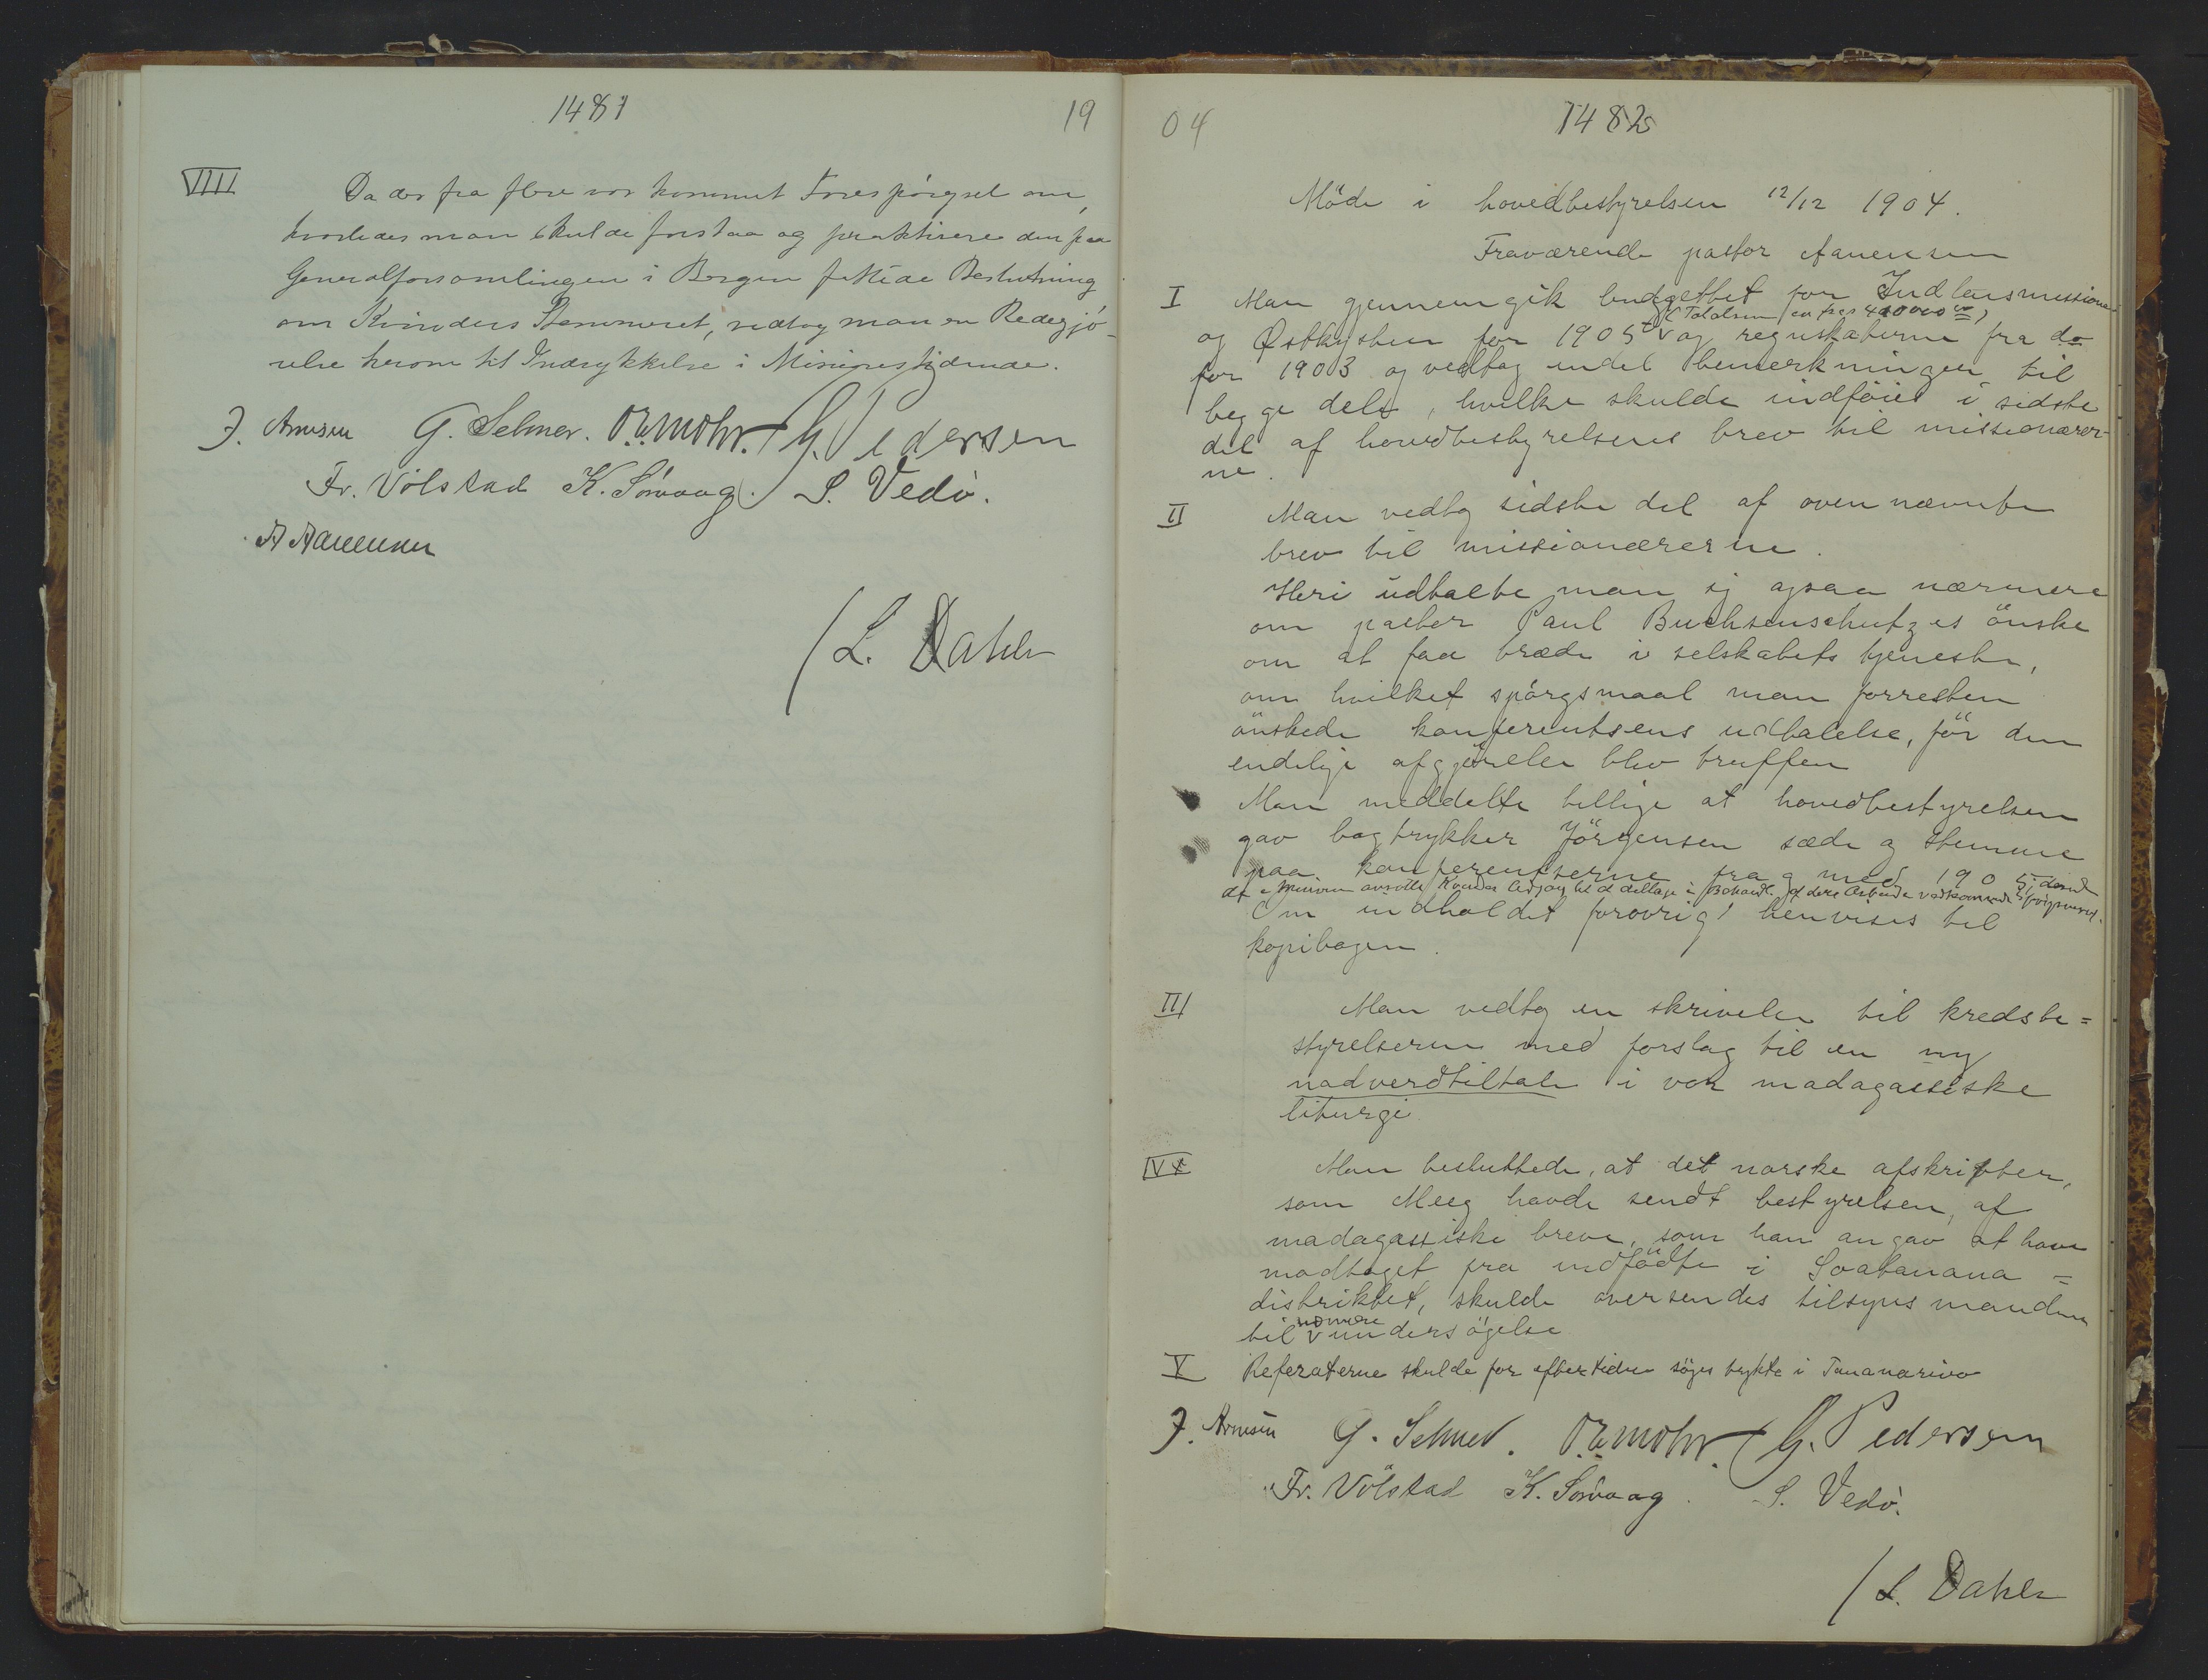 1481
19
VIII
Da der fra flere var kommet Forespörgsel om,
hvorledes man skulde forstaa og praktisere den paa
Generalforsamlingen i Bergen fattede Beslutning
om Kvinders Stemmeret, vedtog man en Redegjö-
relse herom til Indrykkelse i Missionstidende.
J. Arnesen G. Selmer. O. Z. Mohr. G. Pedersen
Fr. Völstad K. Sörvaag. S. Vedö.
A Aanensen
/ L. Dahle
04
1482
Möde i hovedbestyrelsen 12/12 1904.
Fraværende pastor Aanensen
I Man gjennemgik budgettet for Indlandsmissionen
(Totalsum ca frcs 400000 00)
og Østkysten for 1905 og regnskaberne fra do
for 1903 og vedtog endel bemerkninger til
begge dele, hvilke skulde indföies i sidste
del af hovedbestyrelsens brev til missionærer-
ne.
II Man vedtog sidste del af ovennævnte
brev til missionærerne.
Heri udtalte man sig ogsaa nærmere
om pastor Paul Buchsenschutz's önske
om at faa træde i selskabets tjeneste,
om hvilket spörgsmaal man forresten
önskede konferentsens udtalelse, för den
endelige afgjörelse blev truffen
Man meddelte tillige at hovedbestyrelsen
gav bogtrykker Jörgensen sæde og stemme
paa konferentserne fra og med 1905, samt
at i Missionen ansatte Kvinder Adgang til at deltage i Behandl. af dere Arbeide vedkommende Spörgsmaal.
Om indholdet forövrigt henvises til
kopibogen.
III Man vedtog en skrivelse til kredsbe=
styrelserne med forslag til en ny
nadverdtiltale i vor madagassiske
liturgi.
IV Man besluttede, at det norske afskrifter,
som Meeg havde sendt bestyrelsen, af
madagassiske breve, som han angav at have
modtaget fra indfödte i Soatanana =
distriktet, skulde oversendes tilsynsmanden
nærmere
til undersögelse
V Referaterne skulde for eftertiden söges trykte i Tananarivo
J. Arnesen G. Selmer. O. Z. Mohr. G. Pedersen
Fr. Völstad K. Sörvaag. S. Vedö.
/ L. Dahle